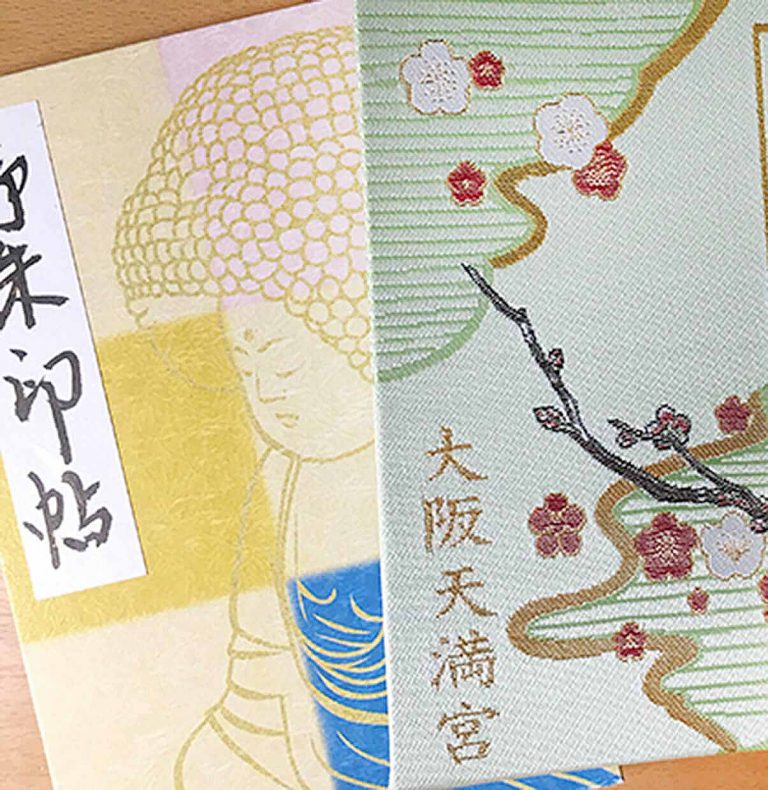 御朱印帖
大阪天満宮